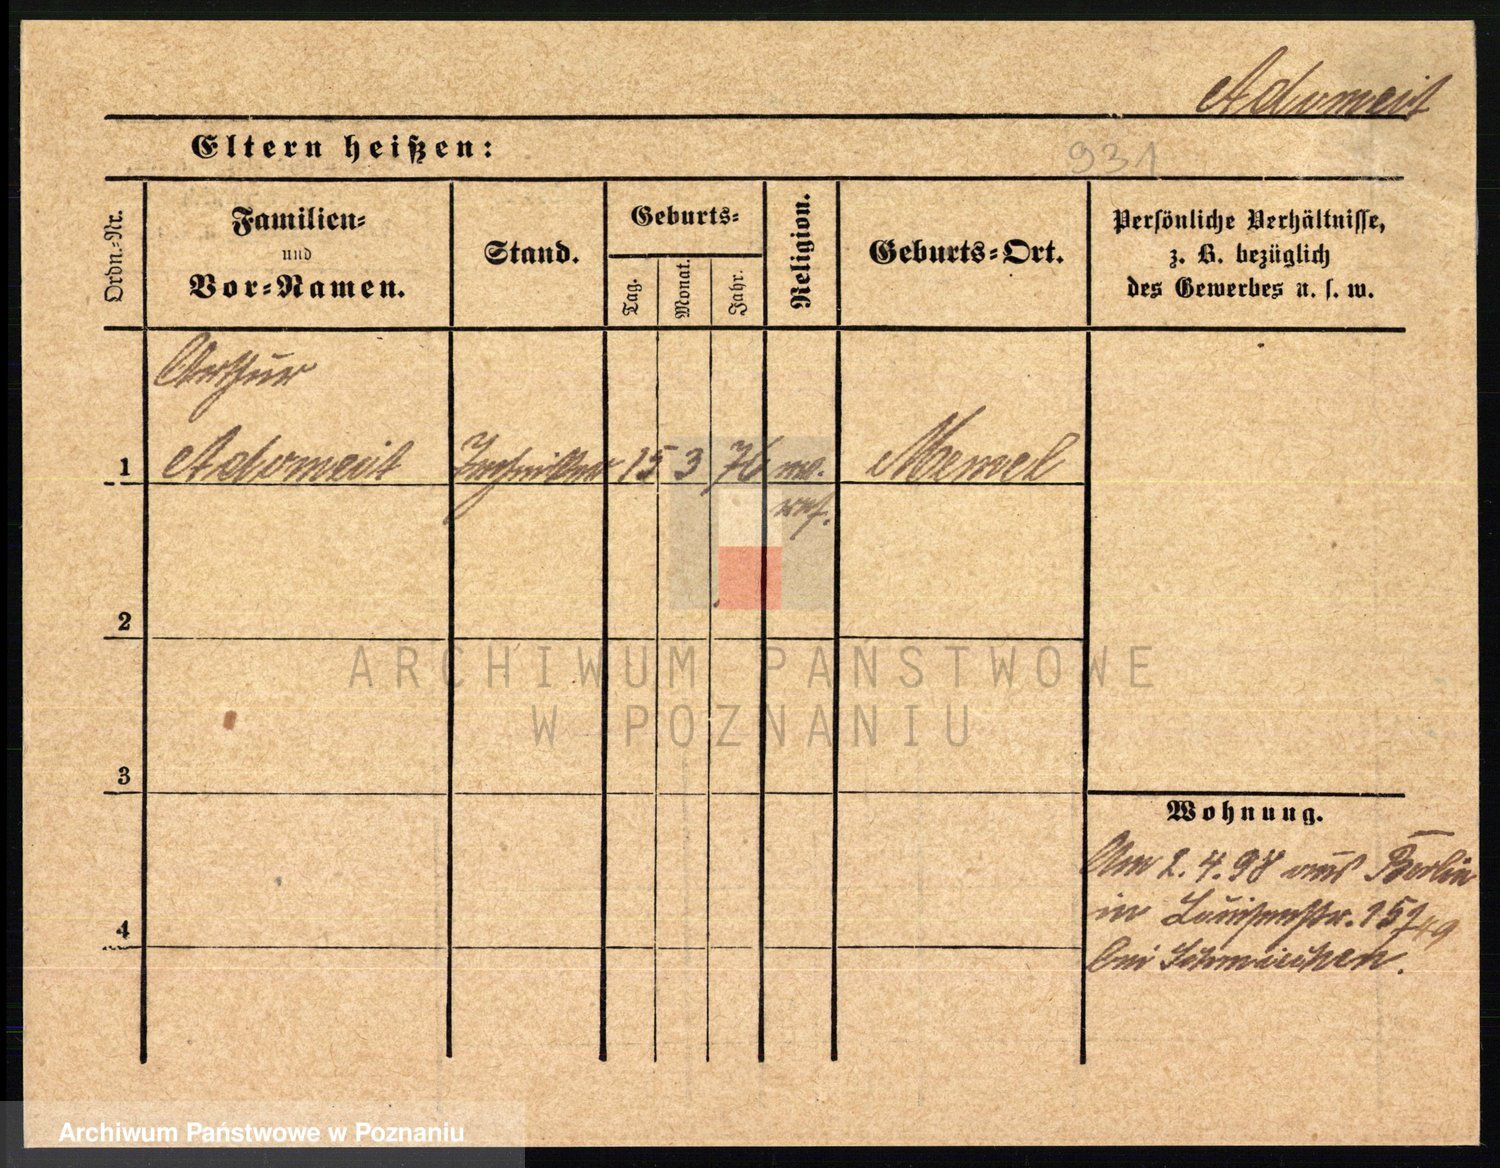 Adomeit
Eltern heißen:
931
Ordn.-Nr.
Familien-
und
Vor-Namen.
Stand.
Geburts-
Tag.
Monat.
Jahr.
Religion.
Geburts-Ort.
Persönliche Verhältnisse,
z. B. bezüglich
des Gewerbes u. s. w.
Arthur
1 Adomeit Techniker 15 3 76 Memel
ref.
2
ARCHIWUM PANSTWOWE
W POZNANIU
3
Wohnung.
Am 2. 4. 98 aus Berlin
in Louisenstr. 15
4
bei Schmädicke.
Archiwum Państwowe w Poznaniu